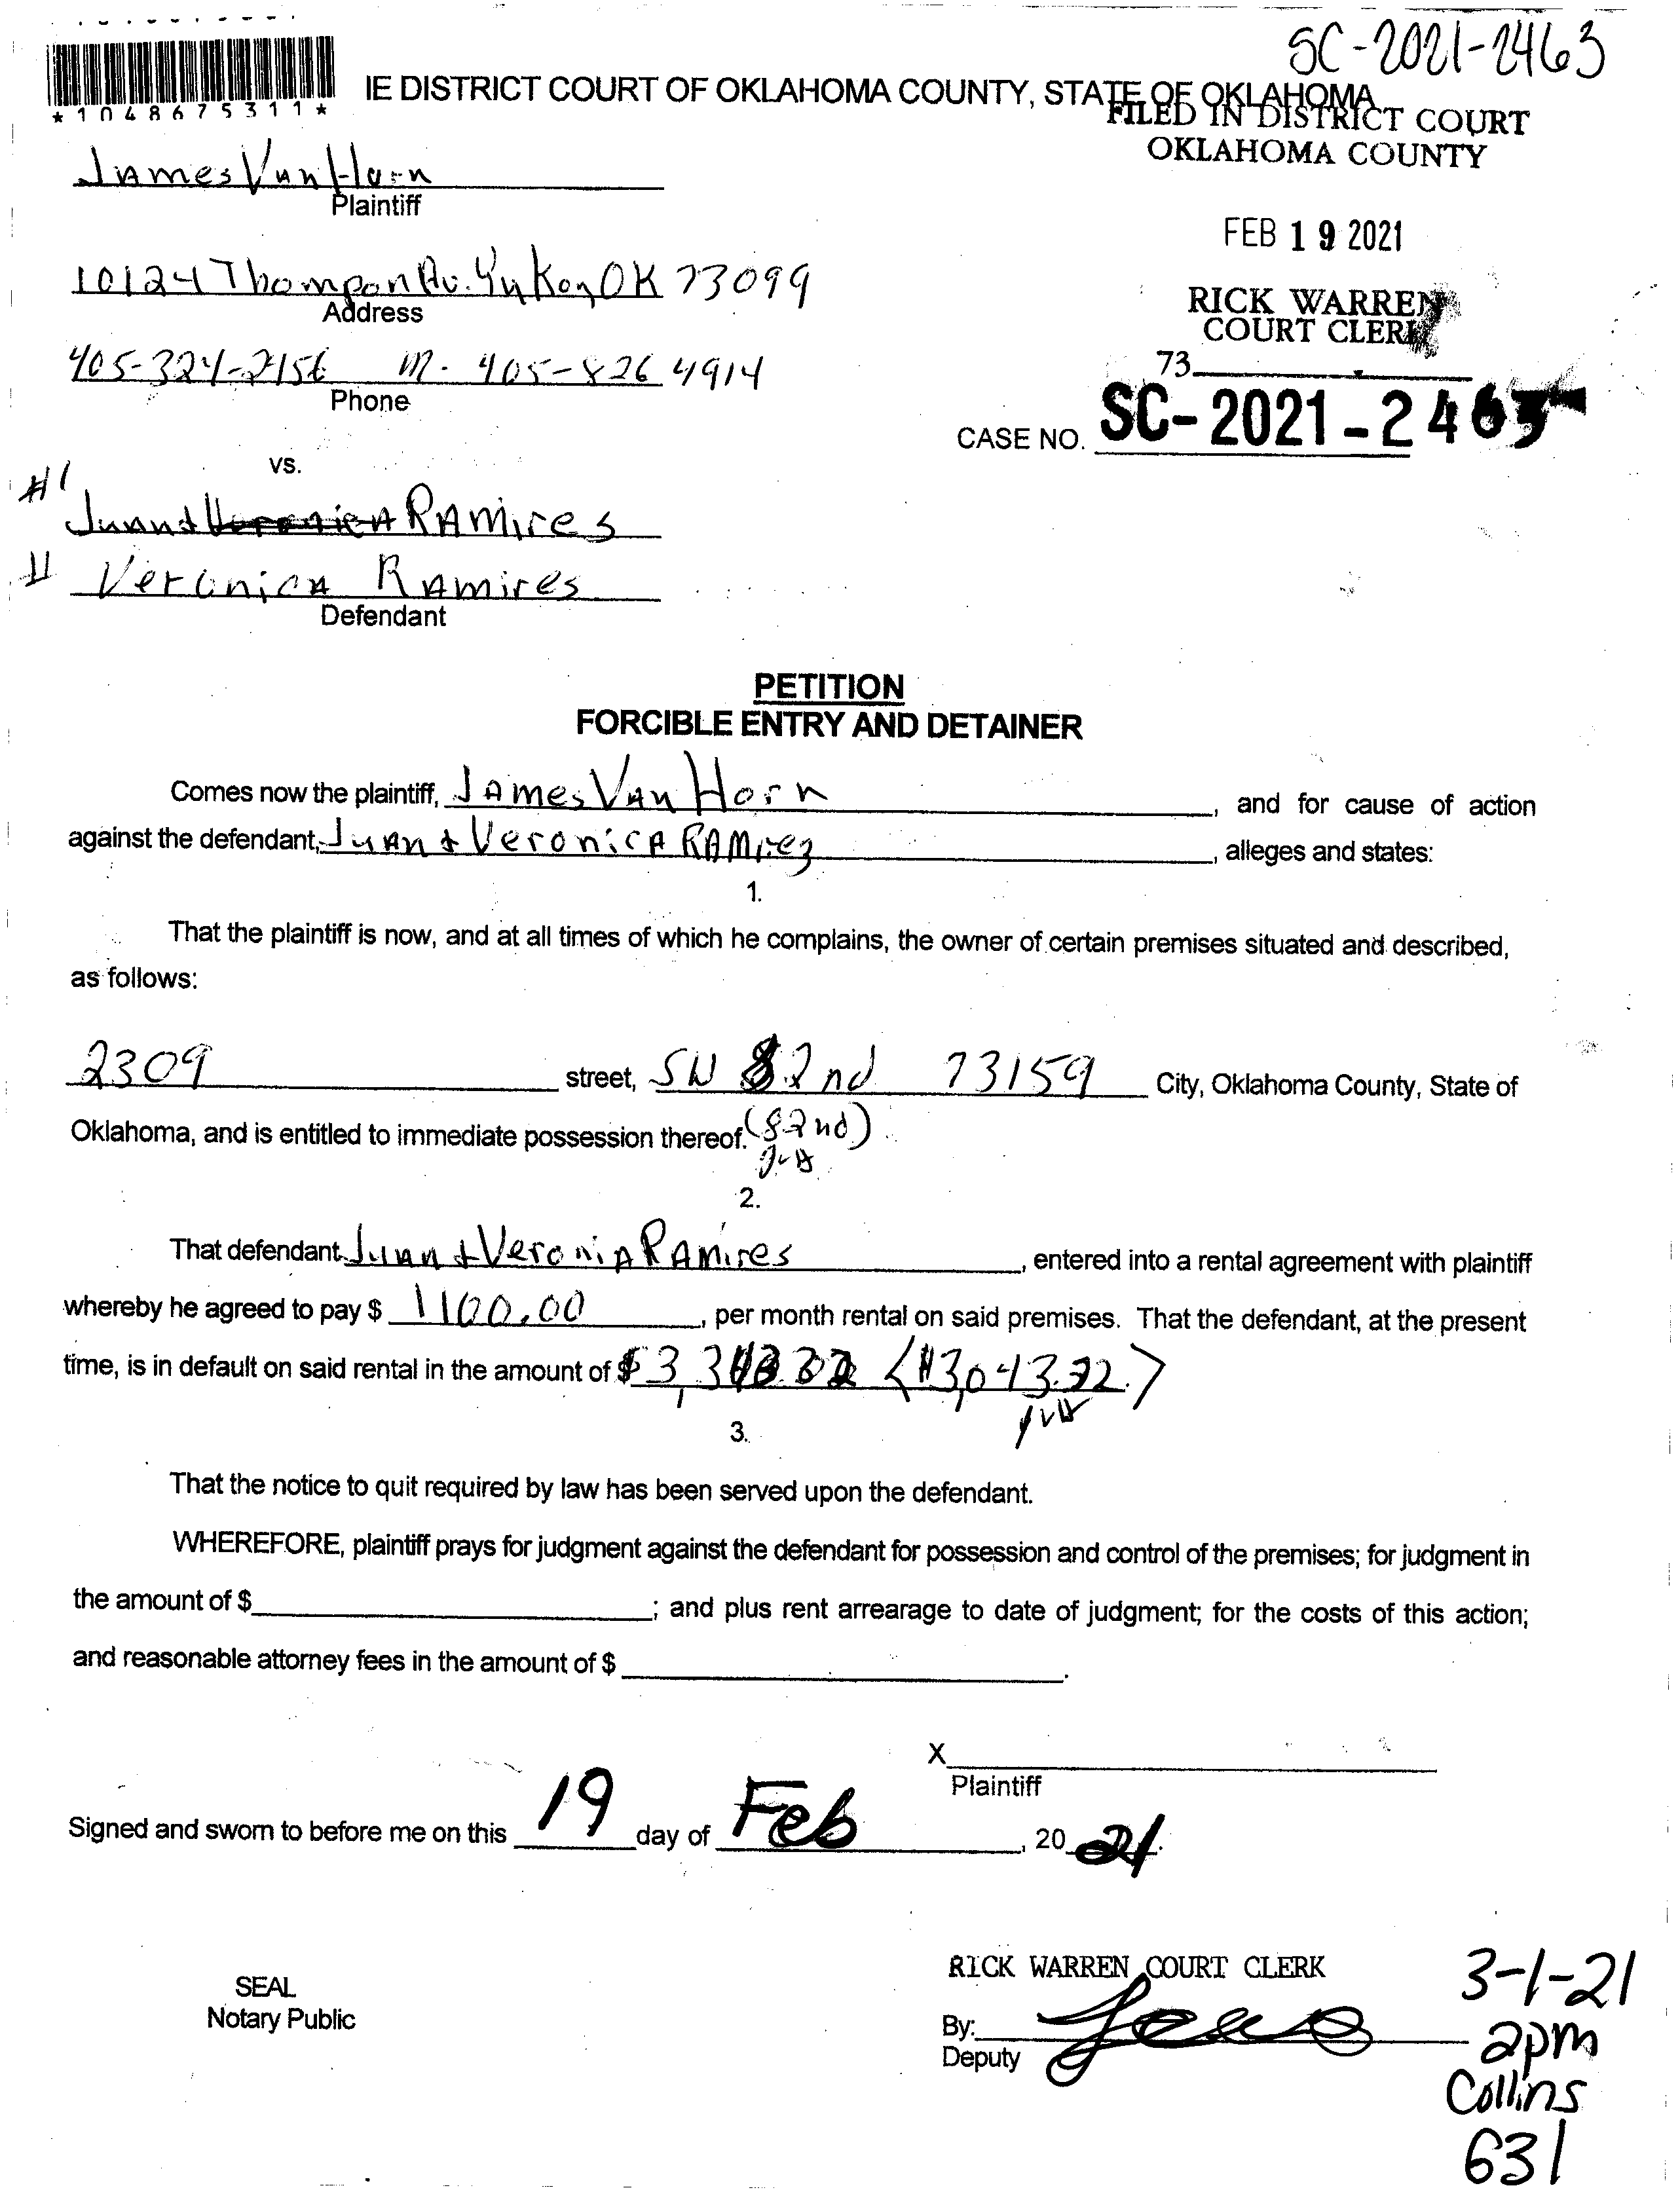 SC-2021-2463
*1048675311*
IE DISTRICT COURT OF OKLAHOMA COUNTY, STATE OF OKLAHOMA
FILED IN DISTRICT COURT
OKLAHOMA COUNTY
James Van Horn
Plaintiff
FEB 19 2021
10124 Thompon Av. Yukon OK 73099
Address
RICK WARREN
COURT CLERK
405-324-2156 M. 405-826 4914
Phone
73
CASE NO. SC-2021-2463
vs.
#1
Juan & Veronica RAMires
11 Veronica Ramires
Defendant
PETITION
FORCIBLE ENTRY AND DETAINER
Comes now the plaintiff, JAmes VAn Horn, and for cause of action
against the defendant, JuAn & VeronicA RAMirez, alleges and states:
1.
That the plaintiff is now, and at all times of which he complains, the owner of certain premises situated and described,
as follows:
2309 street, SW 82nd 73159 City, Oklahoma County, State of
Oklahoma, and is entitled to immediate possession thereof. (82nd)
2.
That defendant JuAn & VeroniA RAmires, entered into a rental agreement with plaintiff
whereby he agreed to pay $ 1100.00, per month rental on said premises. That the defendant, at the present
time, is in default on said rental in the amount of $
3.
That the notice to quit required by law has been served upon the defendant.
WHEREFORE, plaintiff prays for judgment against the defendant for possession and control of the premises; for judgment in
the amount of $; and plus rent arrearage to date of judgment; for the costs of this action;
and reasonable attorney fees in the amount of $.
X
Plaintiff
Signed and sworn to before me on this 19 day of Feb, 20 21.
SEAL
Notary Public
RICK WARREN COURT CLERK
By:
Deputy
3-1-21
2pm
Collins
631